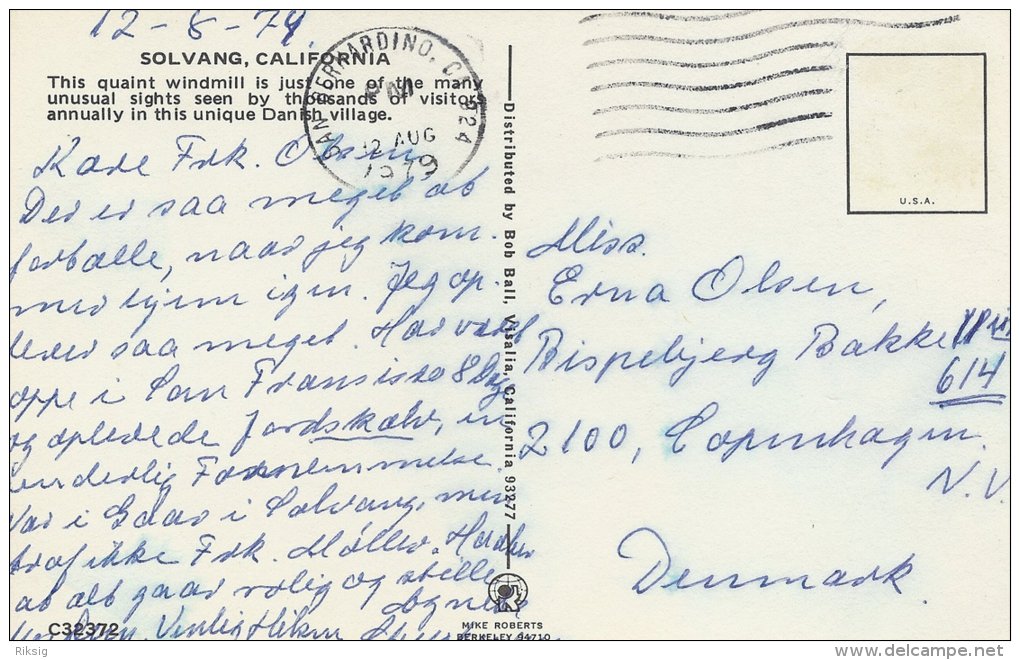 12-8-79.
SOLVANG, CALIFORNIA
This quaint windmill is just one of the many
unusual sights seen by thousands of visitors
annually in this unique Danish village.
SAN BERNARDINO, CA 924
PM
12 AUG
1979
U.S.A.
Kære Frk. Olsen,
Der er saa meget at
fortælle, naar jeg kom-
mer hjem igen. Jeg op-
lever saa meget. Har været
oppe i San Fransisco 8 Dg
og oplevede Jordskælv, en
underlig Fornemmelse.
Var i Gaar i Solvang, men
traf ikke Frk. Møller. Haaber
at alt gaar rolig og stille
Agnes
Venlig Hilsen
C32372
Distributed by Bob Ball, Visalia, California 93277
MIKE ROBERTS
BERKELEY 94710
Miss.
Erna Olsen,
Bispebjerg Bakke
614
2100, Copenhagen
N.V.
Denmark
Riksig